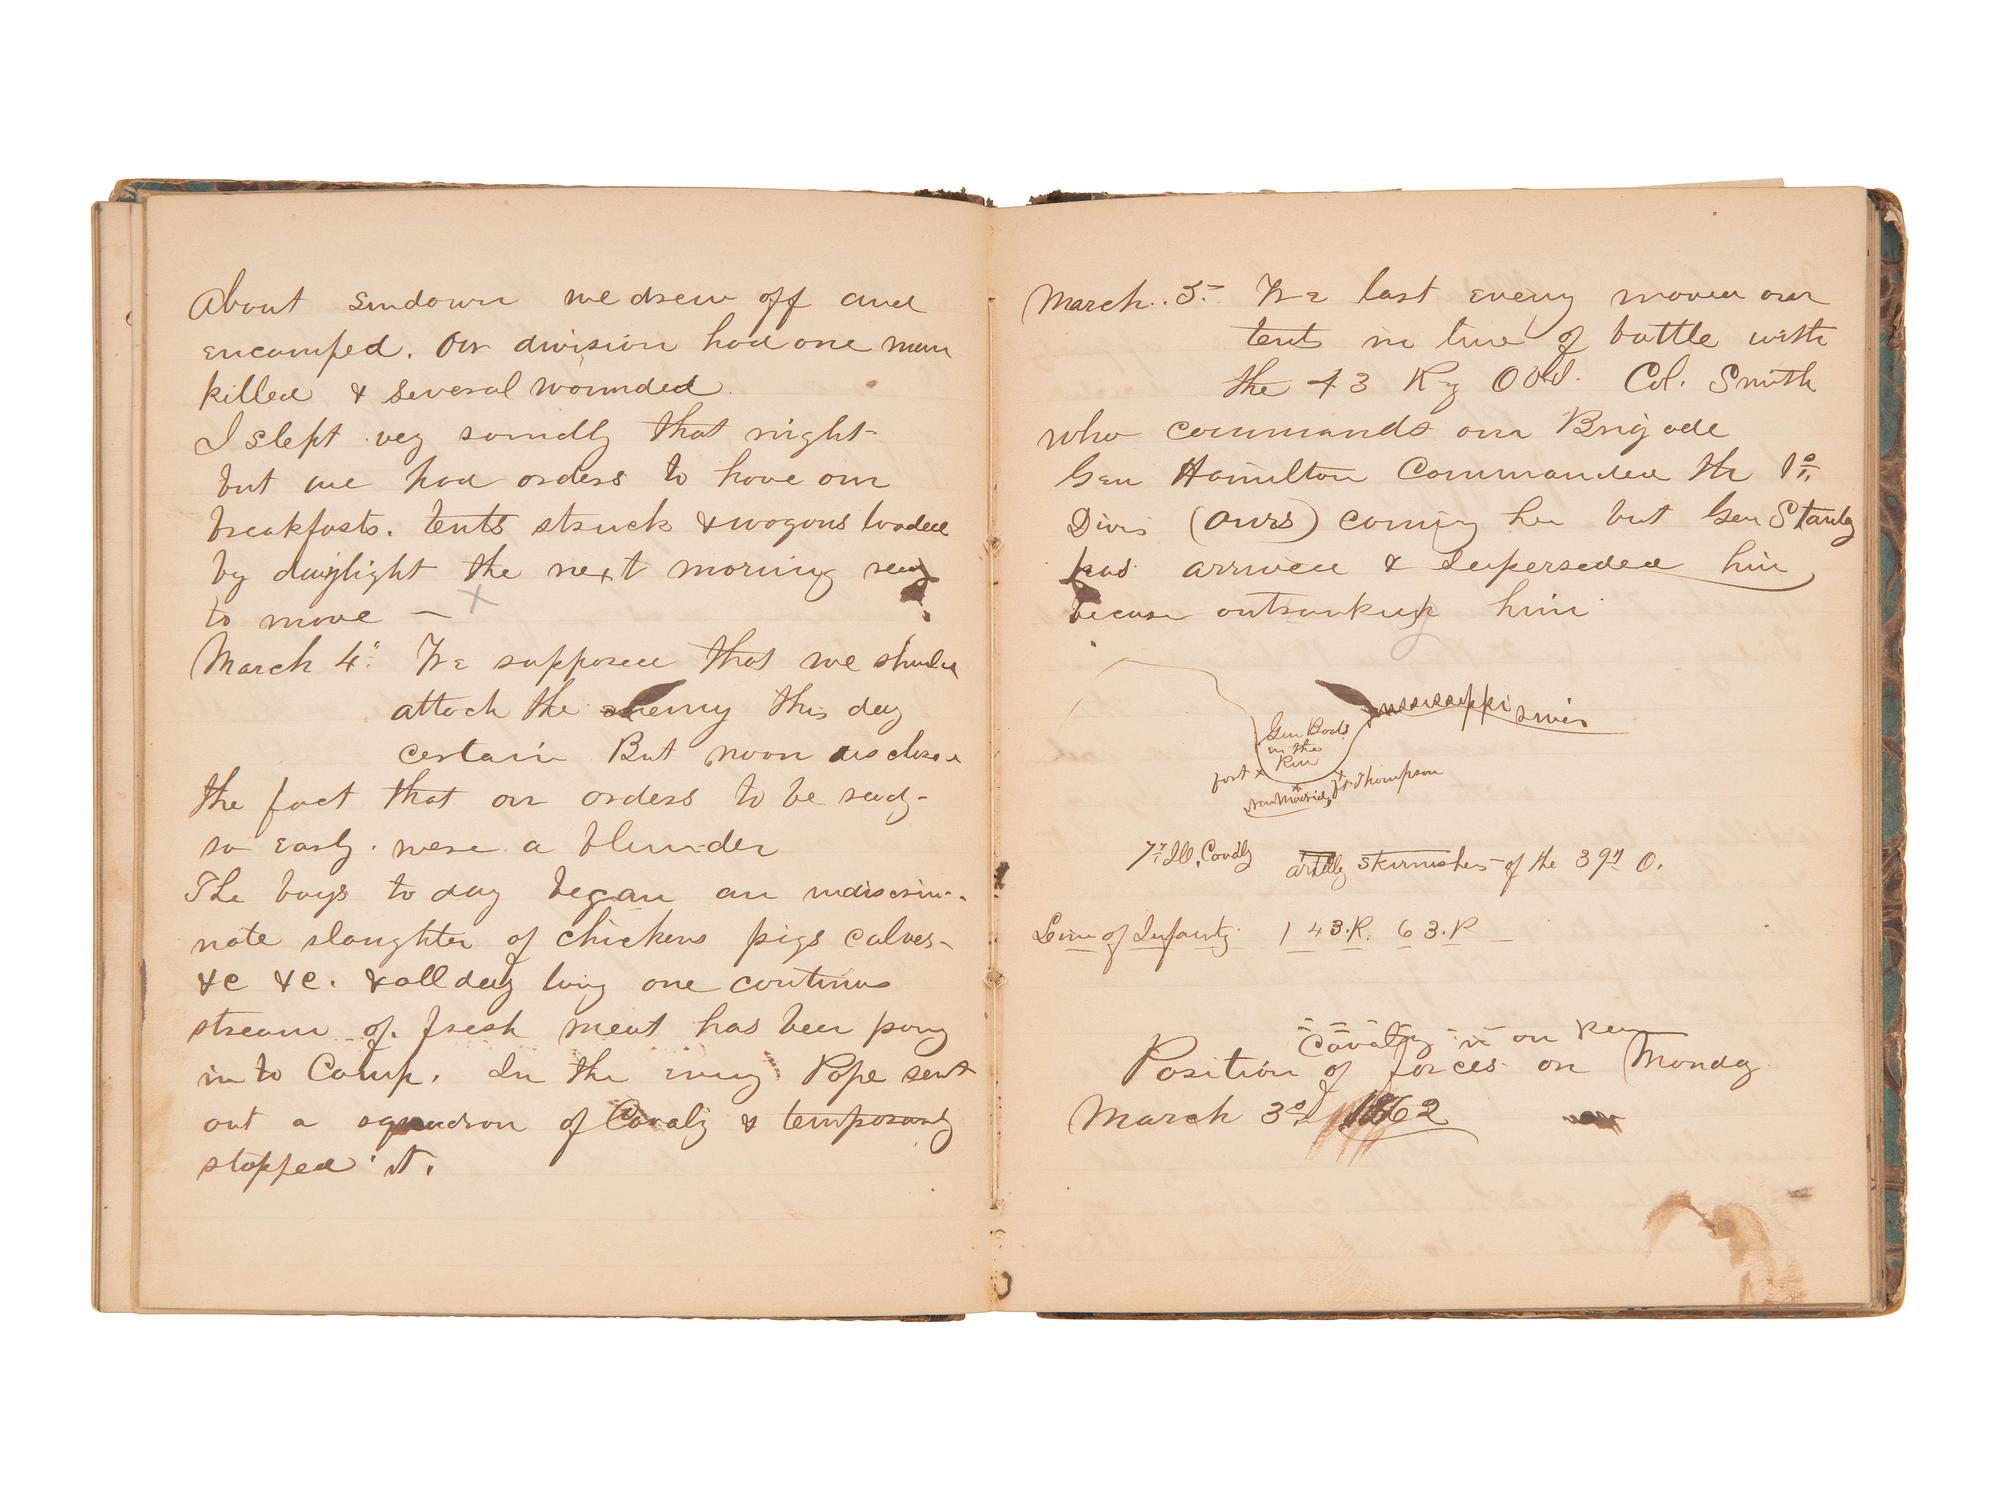 About sundown we drew off and
encamped. Our division had one man
killed & several wounded.
I slept vey soundly that night
but we had orders to have our
breakfasts. tents struck & wagons loaded
by daylight the next morning ready
to move —
March 4th We supposed that we should
attack the enemy this day
certain But noon disclosed
the fact that our orders to be ready
so early were a blunder
The boys to day began an indiscrim-
nate slaughter of chickens pigs calves
&c &c. & all day long one continus
stream of fresh meat has been pong
in to Camp. In the eveng Pope sent
out a squadron of Cavaly & temporaily
stopped it.
March. 5th We last eveng moved our
tents in line of battle with
the 43 Reg OVI. Col. Smith
who commands our Brigade
Gen Hamilton Commanded the 1st
Divis (ours) coming her but Gen Stanly
has arrived & Superseded him
becuse outranking him
Mississippi river
Gun Boats
in the
River
fort x
New Madrid
Ft. Thompson
7th Ill. Cavaly
artilly skirmishers of the 39th O.
Line of Infanty 1 43.R. 63.R
Cavalry in our Rear
Position of forces on Monday
March 3d 1862